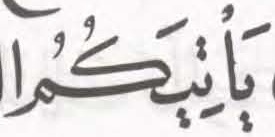 يَأْتِيَكُمُ ا